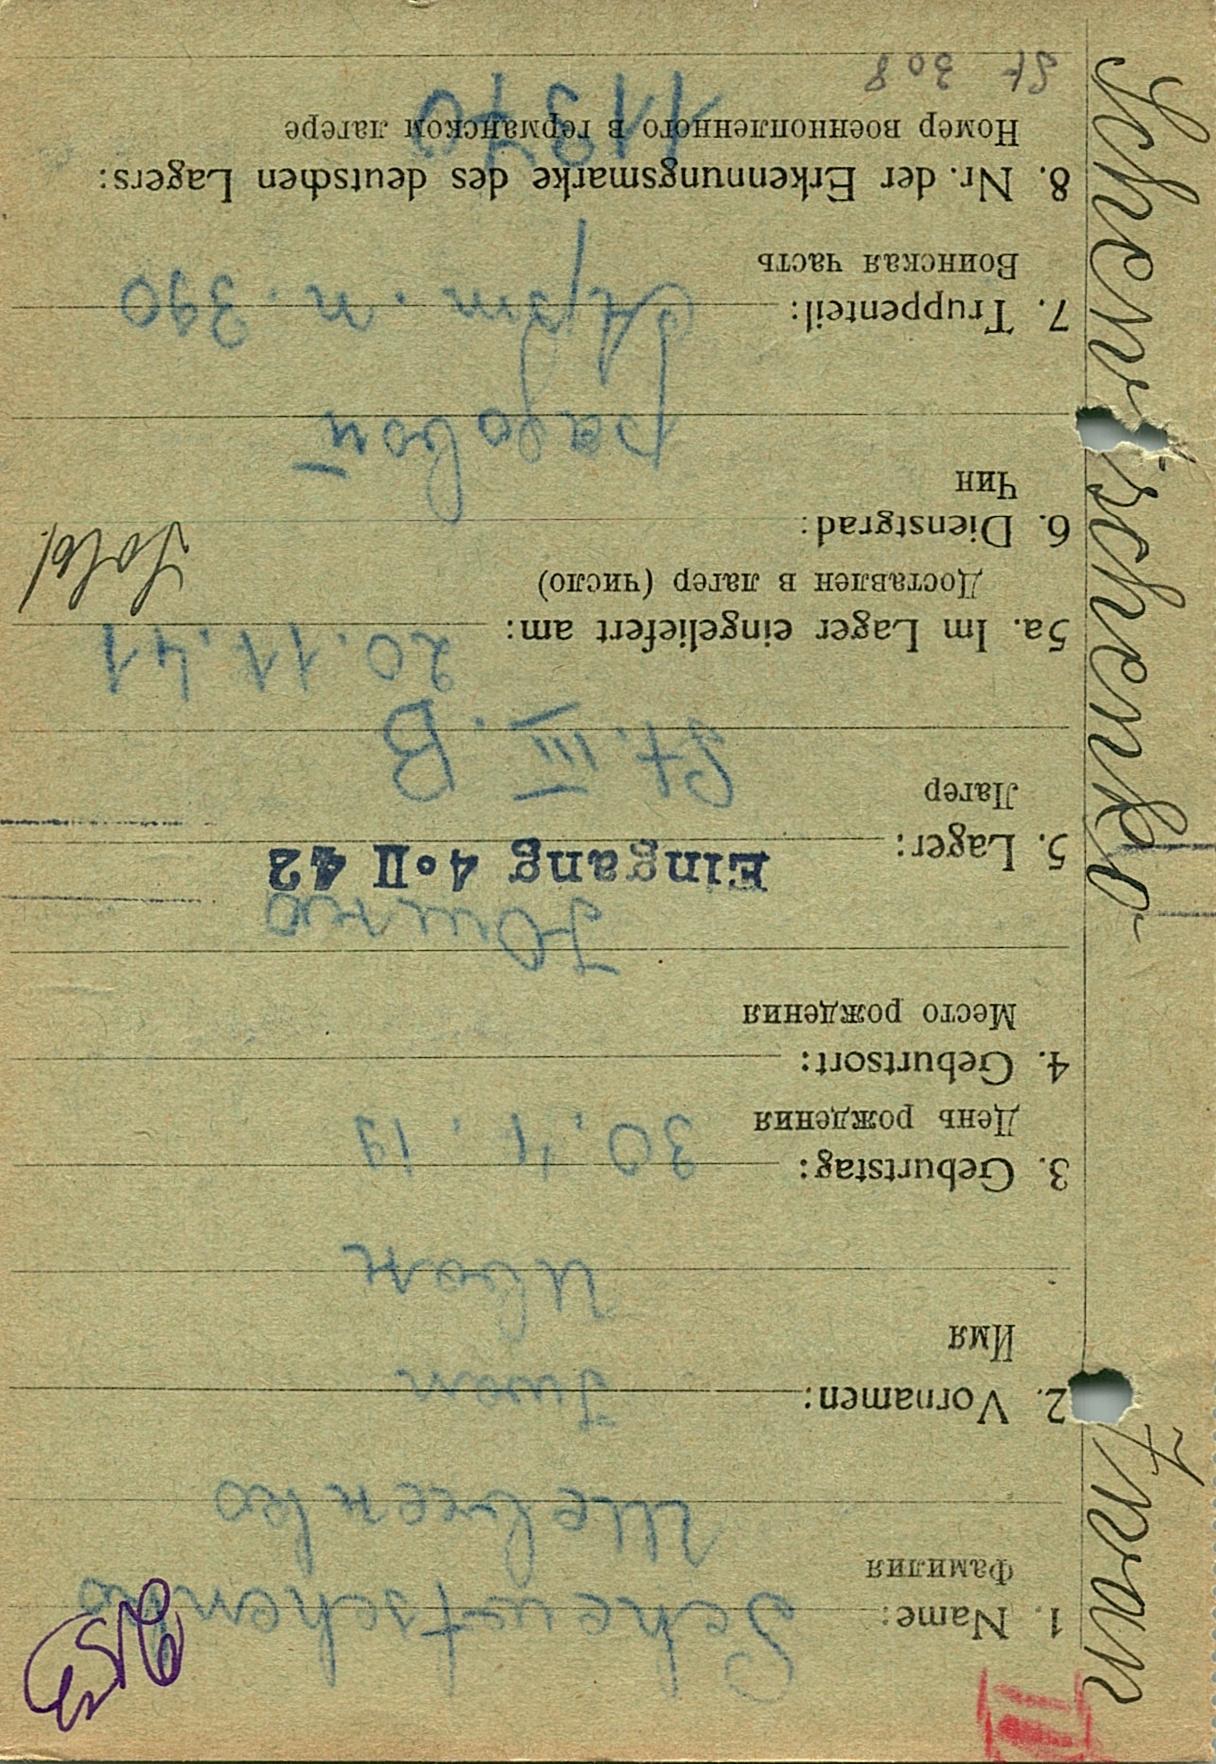 1. Name: Schewtschenko
Фамилия
Шевченко
2. Vornamen: Iwan
Имя
Иван
3. Geburtstag: 30.4.19
День рождения
4. Geburtsort:
Место рождения
Eingang 4.II 42
5. Lager:
Лагер
St. III. B
5a. Im Lager eingeliefert am: 20.11.41
Доставлен в лагер (число)
Sold.
6. Dienstgrad:
Чин
рядовой
7. Truppenteil: Арт. п. 390
Воинская часть
8. Nr. der Erkennungsmarke des deutschen Lagers:
Номер военнопленного в германском лагере
11970
St 308
Schewtschenko Iwan
II